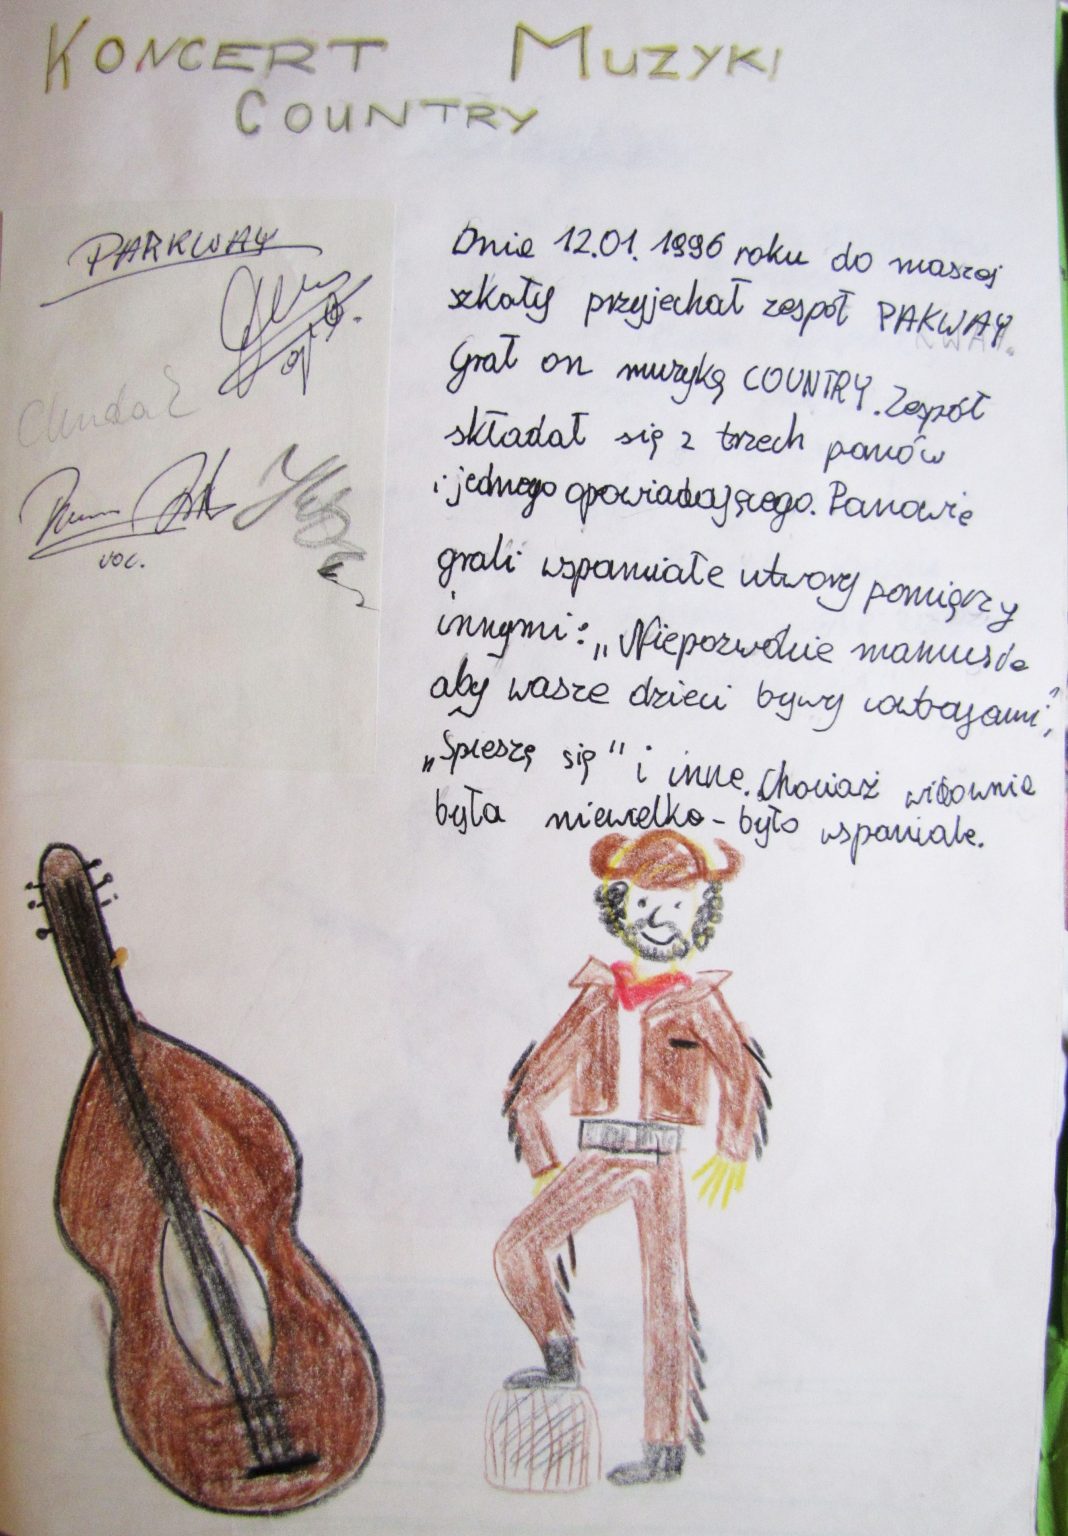 KONCERT MUZYKI
COUNTRY
PARKWAY
voc.
Dnia 12.01.1996 roku do naszej
szkoły przyjechał zespół PAKWAY.
Grał on muzykę COUNTRY. Zespół
składał się z trzech panów
i jednego opowiadającego. Panowie
grali wspaniałe utwory pomięrzy
innymi: „Niepozwólcie mamusie
aby wasze dzieci bywy cowbojami",
„Spieszę się" i inne. Chociaż widownia
była niewielka - było wspaniale.